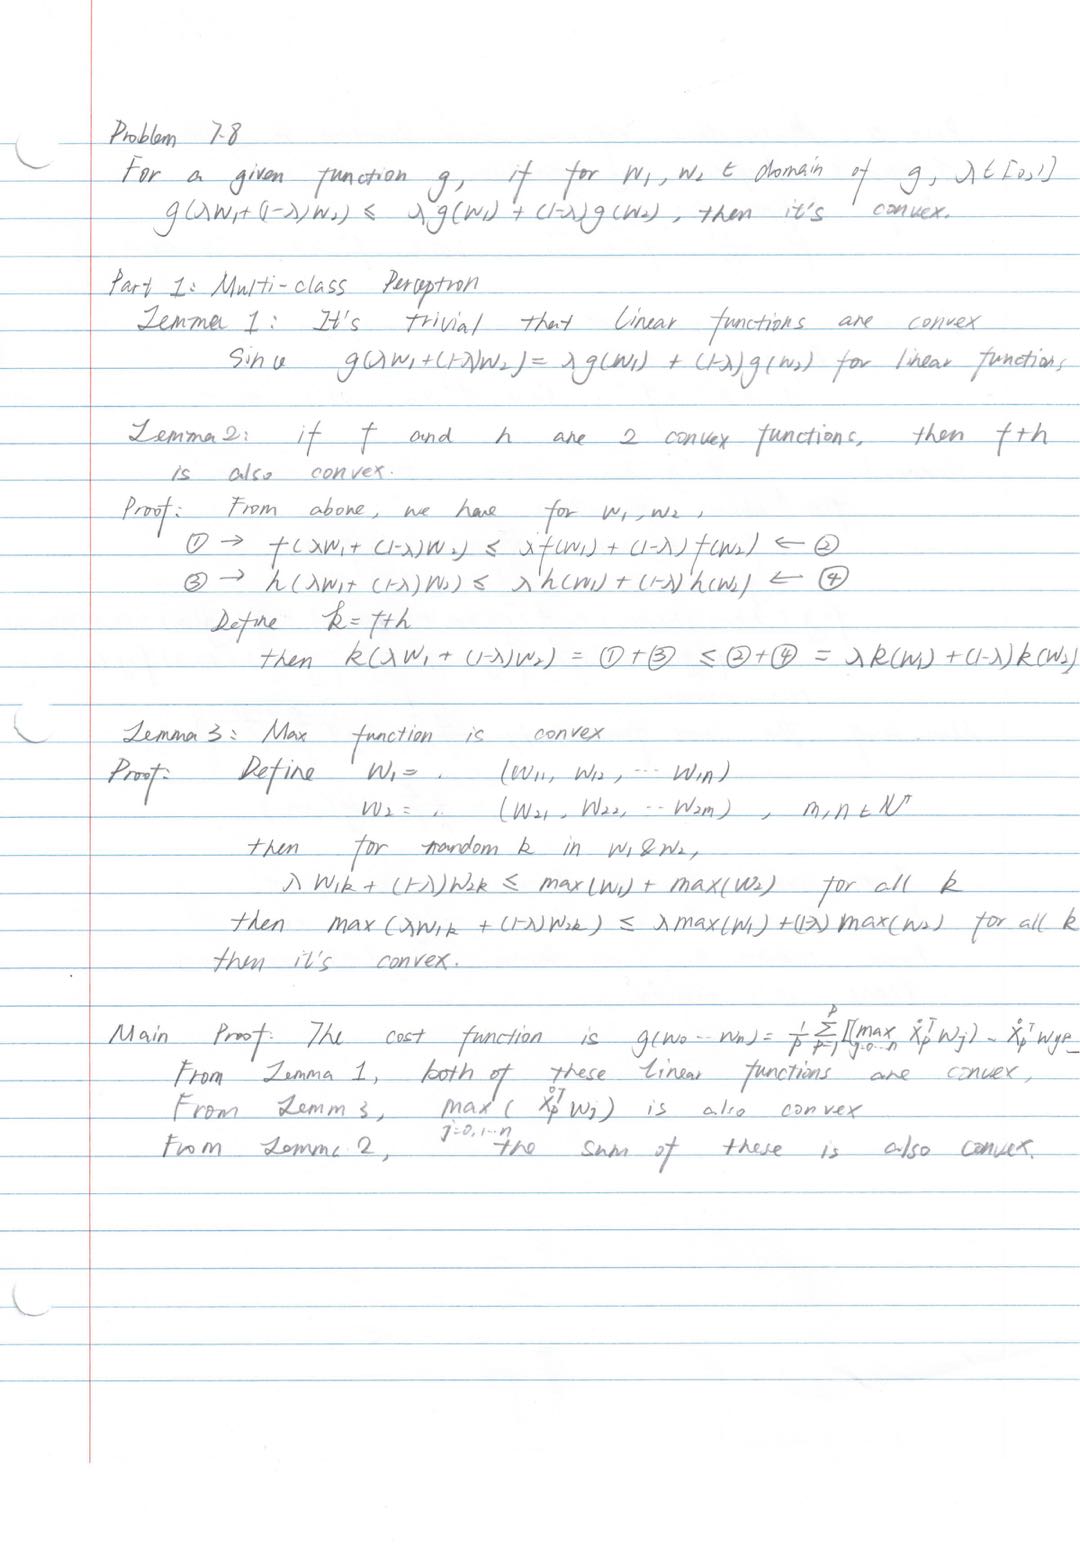 Problem 7.8
For a given function g, if for w₁, w₂ ∈ domain of g, λ∈[0,1]
g(λw₁+(1-λ)w₂) ≤ λg(w₁) + (1-λ)g(w₂), then it's convex.
Part 1: Multi-class Perceptron
Lemma 1: It's trivial that linear functions are convex
Since g(λw₁+(1-λ)w₂) = λg(w₁) + (1-λ)g(w₂) for linear functions
Lemma 2: if f and h are 2 convex functions, then f+h
is also convex.
Proof: From above, we have for w₁, w₂,
① → f(λw₁+ (1-λ)w₂) ≤ λf(w₁) + (1-λ)f(w₂) ← ②
③ → h(λw₁+ (1-λ)w₂) ≤ λh(w₁) + (1-λ)h(w₂) ← ④
Define k = f+h
then k(λw₁ + (1-λ)w₂) = ①+③ ≤ ②+④ = λk(w₁) + (1-λ)k(w₂)
Lemma 3: Max function is convex
Proof: Define w₁ = (w₁₁, w₁₂, ... w₁n)
w₂ = (w₂₁, w₂₂, ... w₂m), m,n ∈ N⁺
then for random k in w₁ & w₂,
λw₁k + (1-λ)w₂k ≤ max(w₁) + max(w₂) for all k
then max(λw₁k + (1-λ)w₂k) ≤ λmax(w₁) + (1-λ)max(w₂) for all k
then it's convex.
Main Proof: The cost function is g(w₀ ... wn) = 1/P Σ_{p=1}^{P} [(max_{j=0...n} x̊ₚᵀwⱼ) - x̊ₚᵀw_{yp}
From Lemma 1, both of these linear functions are convex,
From Lemm 3, max_{j=0,1...n} (x̊ₚᵀwⱼ) is also convex
From Lemma 2, the sum of these is also convex.